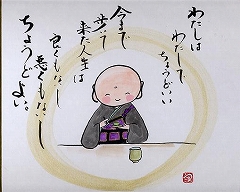 わたしは
わたしで
ちょうどいい
今まで
生きて
来た人生は
良くもないし
悪くもないし
ちょうどよい。